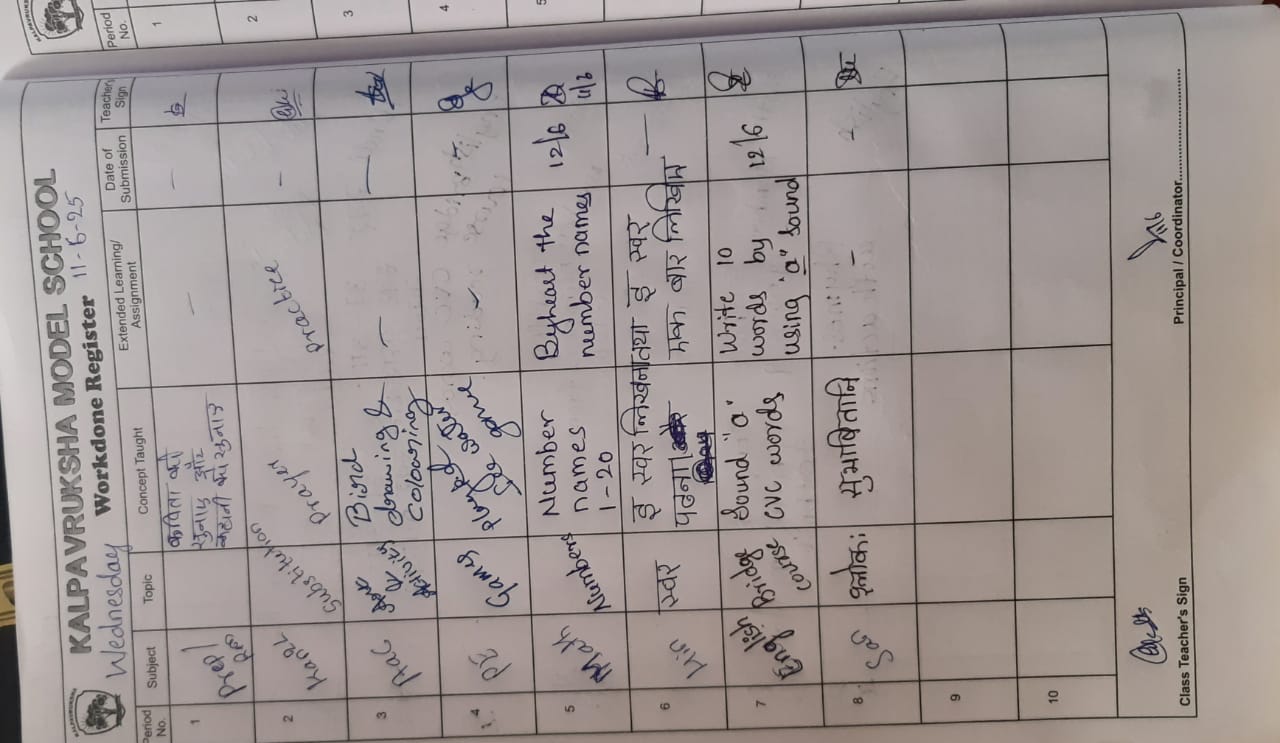 KALPAVRUKSHA MODEL SCHOOL
Wednesday Workdone Register 11-6-25
Period No. Subject Topic Concept Taught Extended Learning/ Assignment Date of Submission Teacher Sign
1 कविता को
सुनाए और
कहानी को सुनाए
2 Substitution Prayer Practice
3 Bird
drawing &
colouring
4 PE Games
5 Math Numbers Number
names
1-20
Byheart the
number names
12/6
11/6
6 Hin स्वर इ स्वर लिखना तथा इ स्वर
पढना एक बार लिखिए
7 English Bridge
course
Sound "a"
CVC words
Write 10
words by
using "a" sound
12/6
8 San श्लोकः सुभाषितानि
9
10
Class Teacher's Sign
Principal / Coordinator
Period No.
1
2
3
4
5